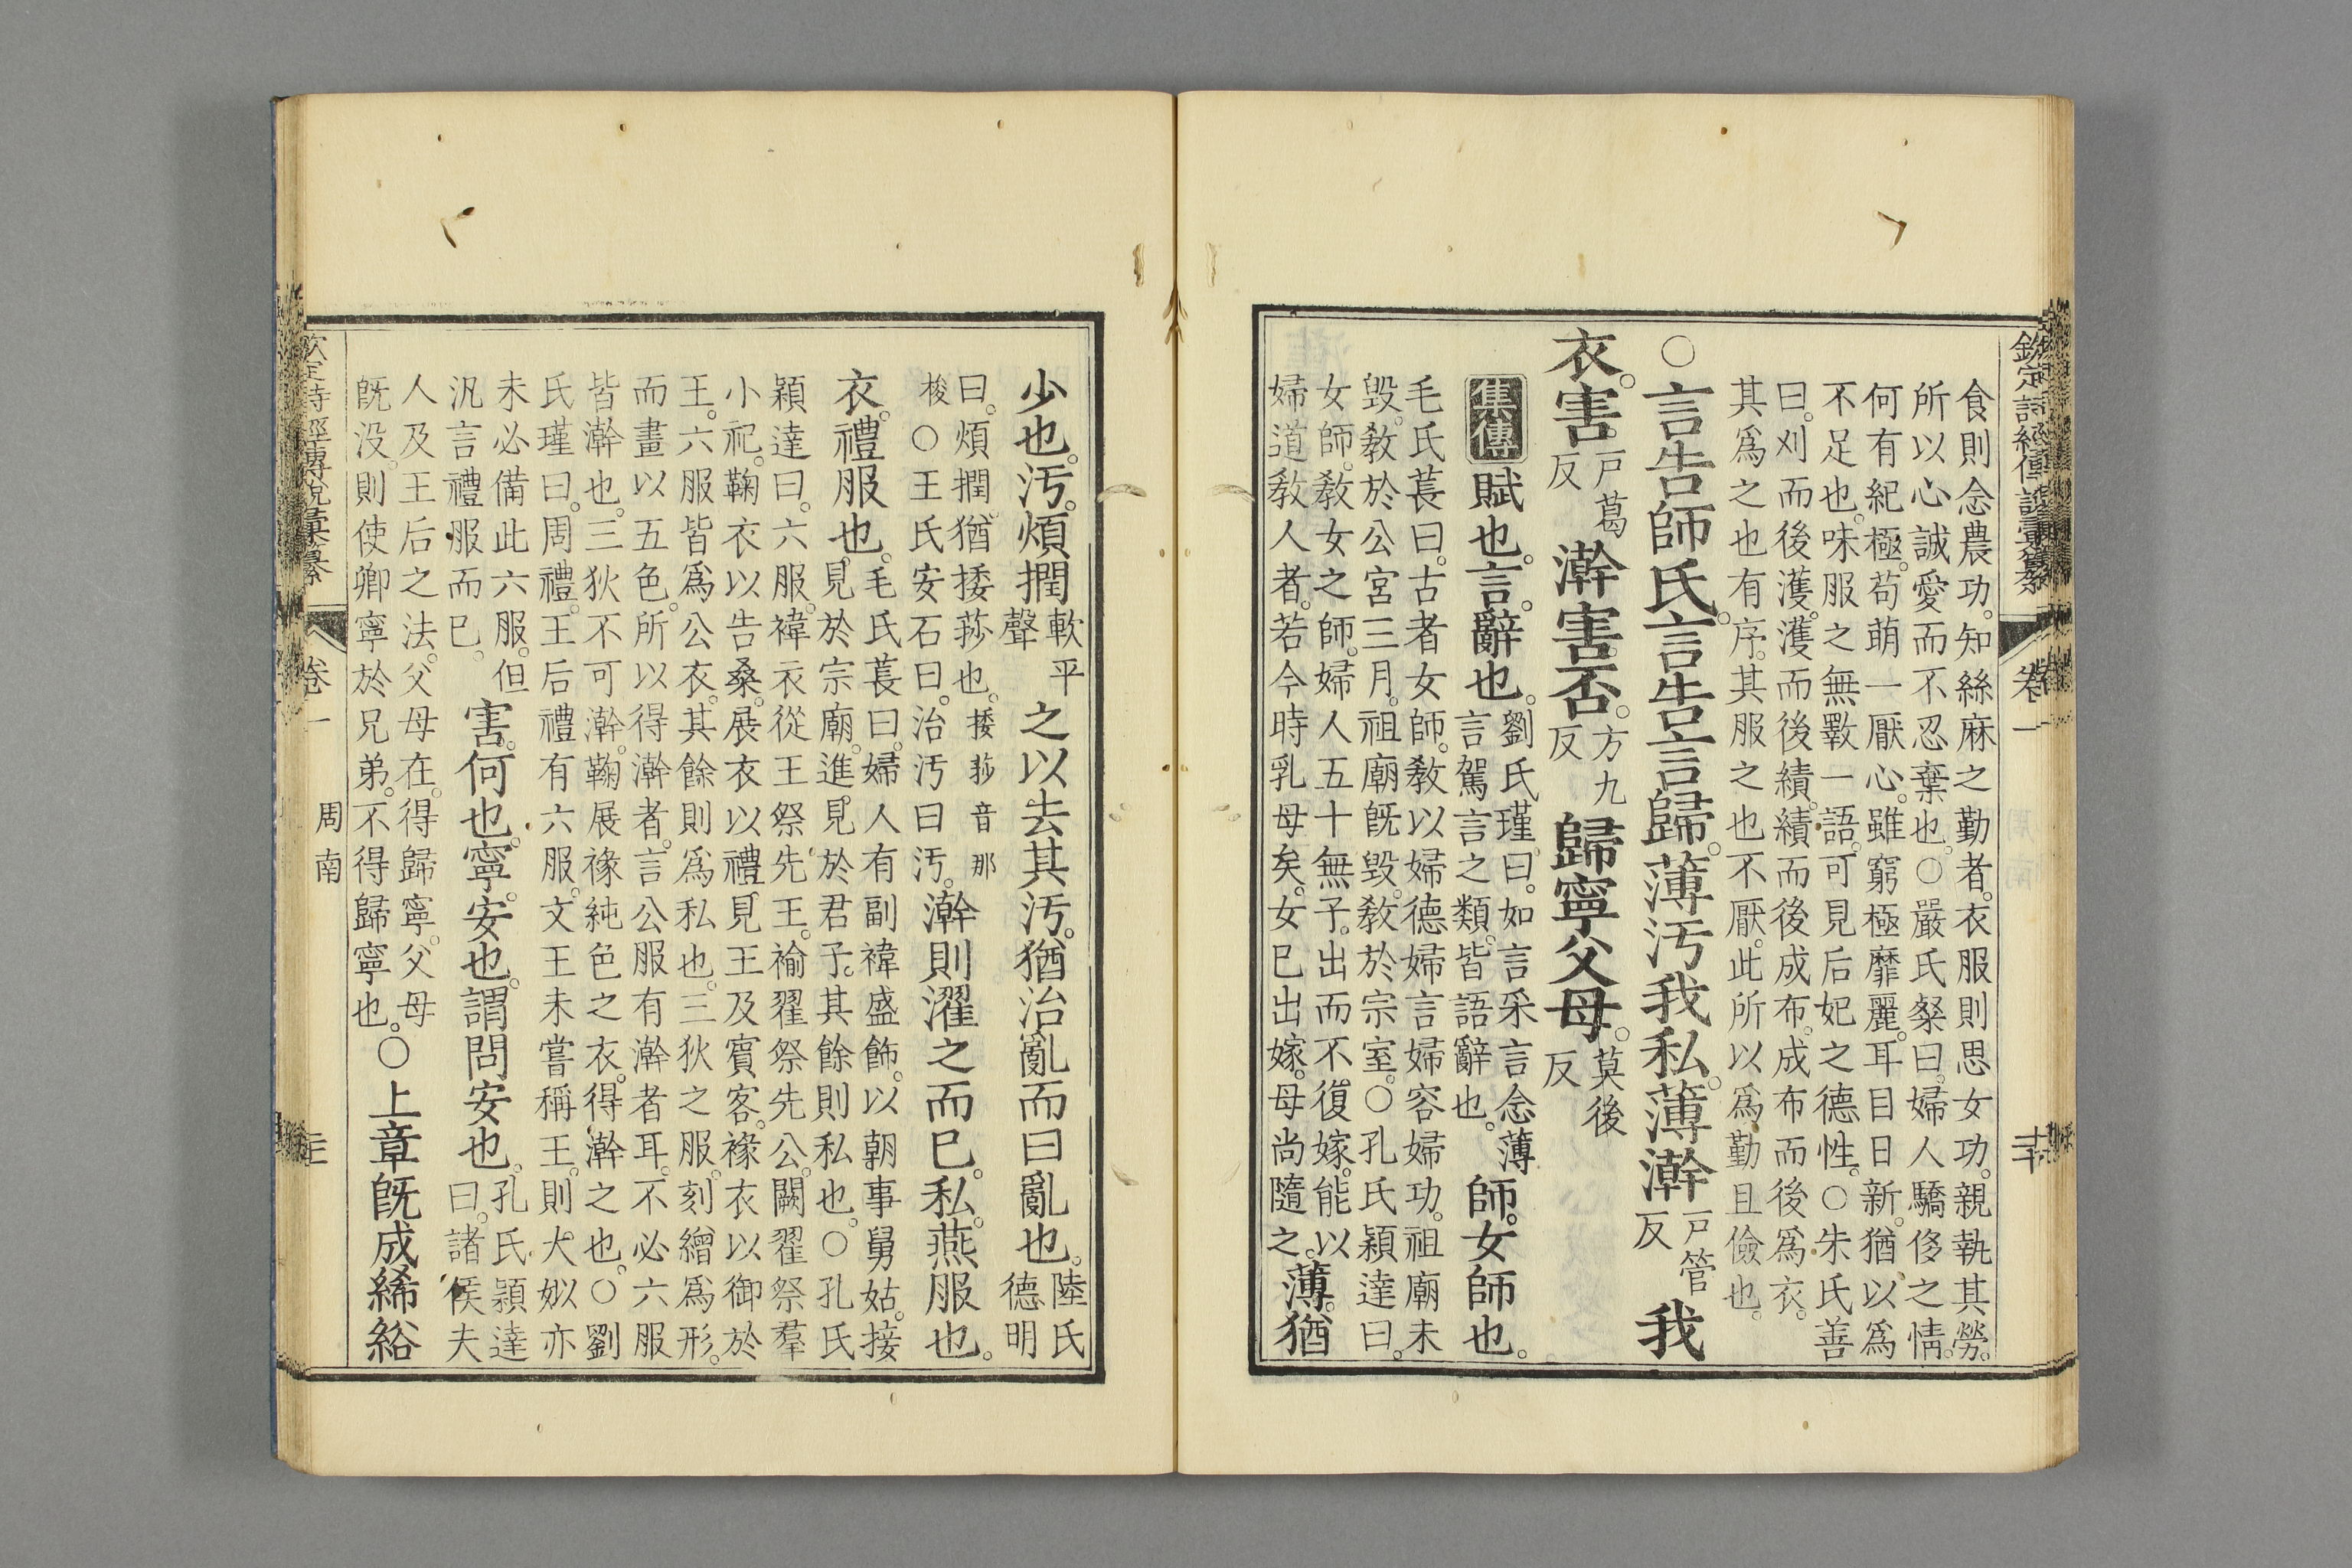 欽定詩經傳說彙纂
卷一
食則念農功。知絲麻之勤者。衣服則思女功。親執其勞。
所以心誠愛而不忍棄也。○嚴氏粲曰。婦人驕侈之情。
何有紀極。苟萌一厭心。雖窮極靡麗。耳目日新。猶以爲
不足也。味服之無斁一語。可見后妃之德性。○朱氏善
曰。刈而後濩。濩而後績。績而後成布。成布而後爲衣。
其爲之也有序。其服之也不厭。此所以爲勤且儉也。
○言告師氏。言告言歸。薄汚我私。薄澣戸管反我
衣。害戸葛反澣害否。方九反歸寧父母。莫後反
集傳賦也。言。辭也。劉氏瑾曰。如言采言念薄言駕言之類。皆語辭也。師。女師也。
毛氏萇曰。古者女師。敎以婦德婦言婦容婦功。祖廟未
毀。敎於公宮三月。祖廟旣毀。敎於宗室。○孔氏穎達曰。
女師。敎女之師。婦人五十無子。出而不復嫁。能以
婦道敎人者。若今時乳母矣。女巳出嫁。母尚隨之。薄。猶
少也。汚。煩撋軟平聲之以去其汚。猶治亂而曰亂也。陸氏德明
曰。煩撋。猶捼莎也。捼莎音那梭○王氏安石曰。治汚曰汚。澣則濯之而巳。私。燕服也。
衣。禮服也。毛氏萇曰。婦人有副褘盛飾。以朝事舅姑。接
見於宗廟。進見於君子。其餘則私也。○孔氏
穎達曰。六服。褘衣從王祭先王。褕翟祭先公。闕翟祭羣
小祀。鞠衣以告桑。展衣以禮見王及賓客。褖衣以御於
王。六服皆爲公衣。其餘則爲私也。三狄之服。刻繒爲形。
而畫以五色。所以得澣者。言公服有澣者耳。不必六服
皆澣也。三狄不可澣。鞠展褖純色之衣。得澣之也。○劉
氏瑾曰。周禮。王后禮有六服。文王未嘗稱王。則大姒亦
未必備此六服。但
汎言禮服而巳。害。何也。寧。安也。謂問安也。孔氏穎達曰。諸侯夫
人及王后之法。父母在。得歸寧。父母
旣没。則使卿寧於兄弟。不得歸寧也。○上章旣成絺綌
欽定詩經傳說彙纂
卷一
周南